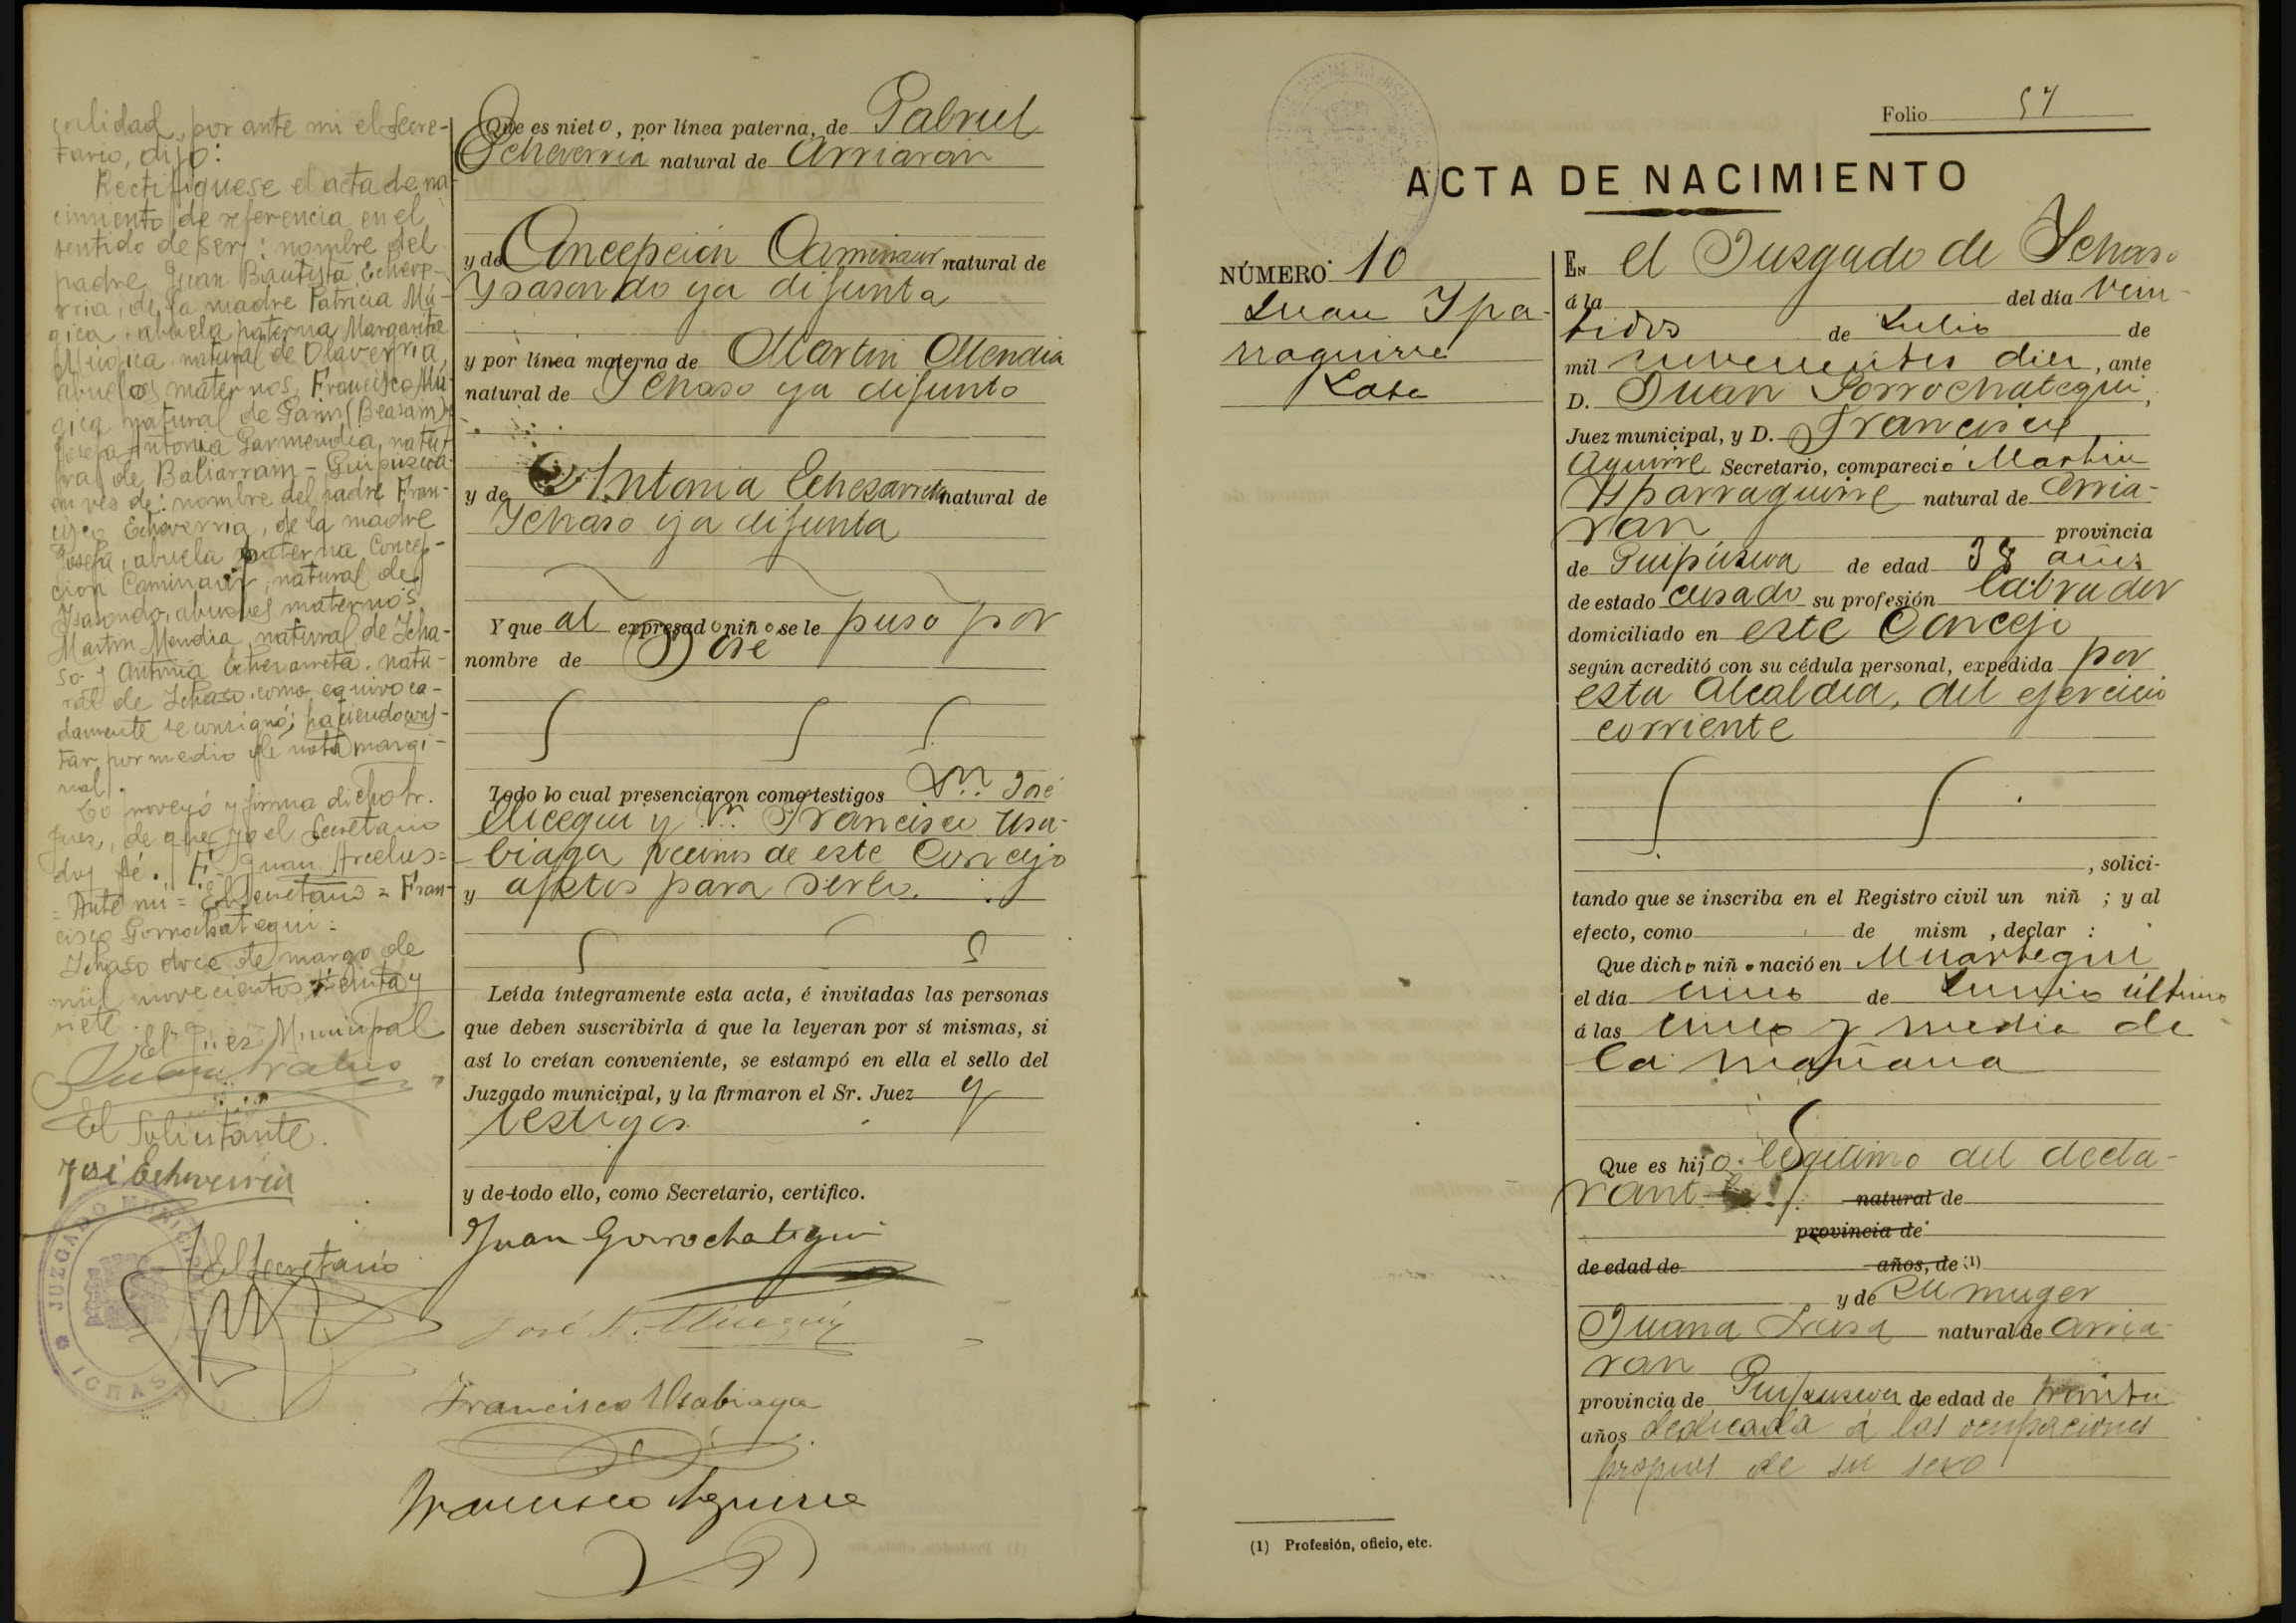 calidad, por ante mi el Secre-
tario, dijo:
Rectifíquese el acta de na-
cimiento de referencia en el
sentido de ser: nombre del
padre Juan Bautista Echeve-
rria, de la madre Patricia Mú-
gica, abuela paterna Margarita
Múgica natural de Olaverria,
abuelos maternos, Francisco Mú-
gica natural de Garin (Beasain) y
Josefa Antonia Garmendia, natu-
ral de Baliarrain - Guipúzcoa
en vez de: nombre del padre Fran-
cisco Echeverria, de la madre
Josefa, abuela paterna Concep-
cion Caminaur, natural de
Ysasondo, abuelos maternos
Martin Mendia, natural de Icha-
so y Antonia Echezarreta, natu-
ral de Ichaso, como equivoca-
damente se consignó; haciendo cons-
tar por medio de nota margi-
nal.
Lo proveyó y firma dicho Sr.
Juez, de que yo el Secretario
doy fé. Juan Arcelus =
= Ante mi = El Secretario = Fran-
cisco Gorrochategui =
Ichaso doce de marzo de
mil novecientos treinta y
siete.
El Juez Municipal
El Solicitante.
José Echeverria
El Secretario
JUZGADO MUNICIPAL
ICHASO
Que es nieto, por línea paterna, de Gabriel
Echeverria natural de Arriaran
y de Concepción Caminaur natural de
Ysasondo ya difunta
y por línea materna de Martin Mendia
natural de Ichaso ya difunto
y de Antonia Echezarreta natural de
Ichaso ya difunta
Y que al expresado niño se le puso por
nombre de José
Todo lo cual presenciaron como testigos Dn. José
Mícegui y Dn. Francisco Usa-
biaga vecinos de este Concejo
y aptos para serlo.
Leída íntegramente esta acta, é invitadas las personas
que deben suscribirla á que la leyeran por sí mismas, si
así lo creían conveniente, se estampó en ella el sello del
Juzgado municipal, y la firmaron el Sr. Juez y
testigos
y de todo ello, como Secretario, certifico.
Juan Gorrochategui
Francisco Usabiaga
Francisco Aguirre
Folio 57
ACTA DE NACIMIENTO
NÚMERO 10
Juan Ypa-
rraguirre
Lasa
EN el Juzgado de Ichaso
á la del día vein-
tidos de Julio de
mil novecientos diez, ante
D. Juan Gorrochategui,
Juez municipal, y D. Francisco
Aguirre Secretario, compareció Martin
Ysparraguirre natural de Arria-
ran provincia
de Guipúzcoa de edad 38 años
de estado casado su profesión labrador
domiciliado en este Concejo
según acreditó con su cédula personal, expedida por
esta Alcaldia, del ejercicio
corriente
, solici-
tando que se inscriba en el Registro civil un niñ ; y al
efecto, como de mism , declar :
Que dicho niño nació en Muartegui
el día uno de Junio último
á las cinco y media de
la mañana
Que es hijo legítimo del decla-
rante natural de
provincia de
de edad de años, de (1)
y de su muger
Juana Lasa natural de Arria-
ran
provincia de Guipúzcoa de edad de treinta
años dedicada á las ocupaciones
propias de su sexo
(1) Profesión, oficio, etc.